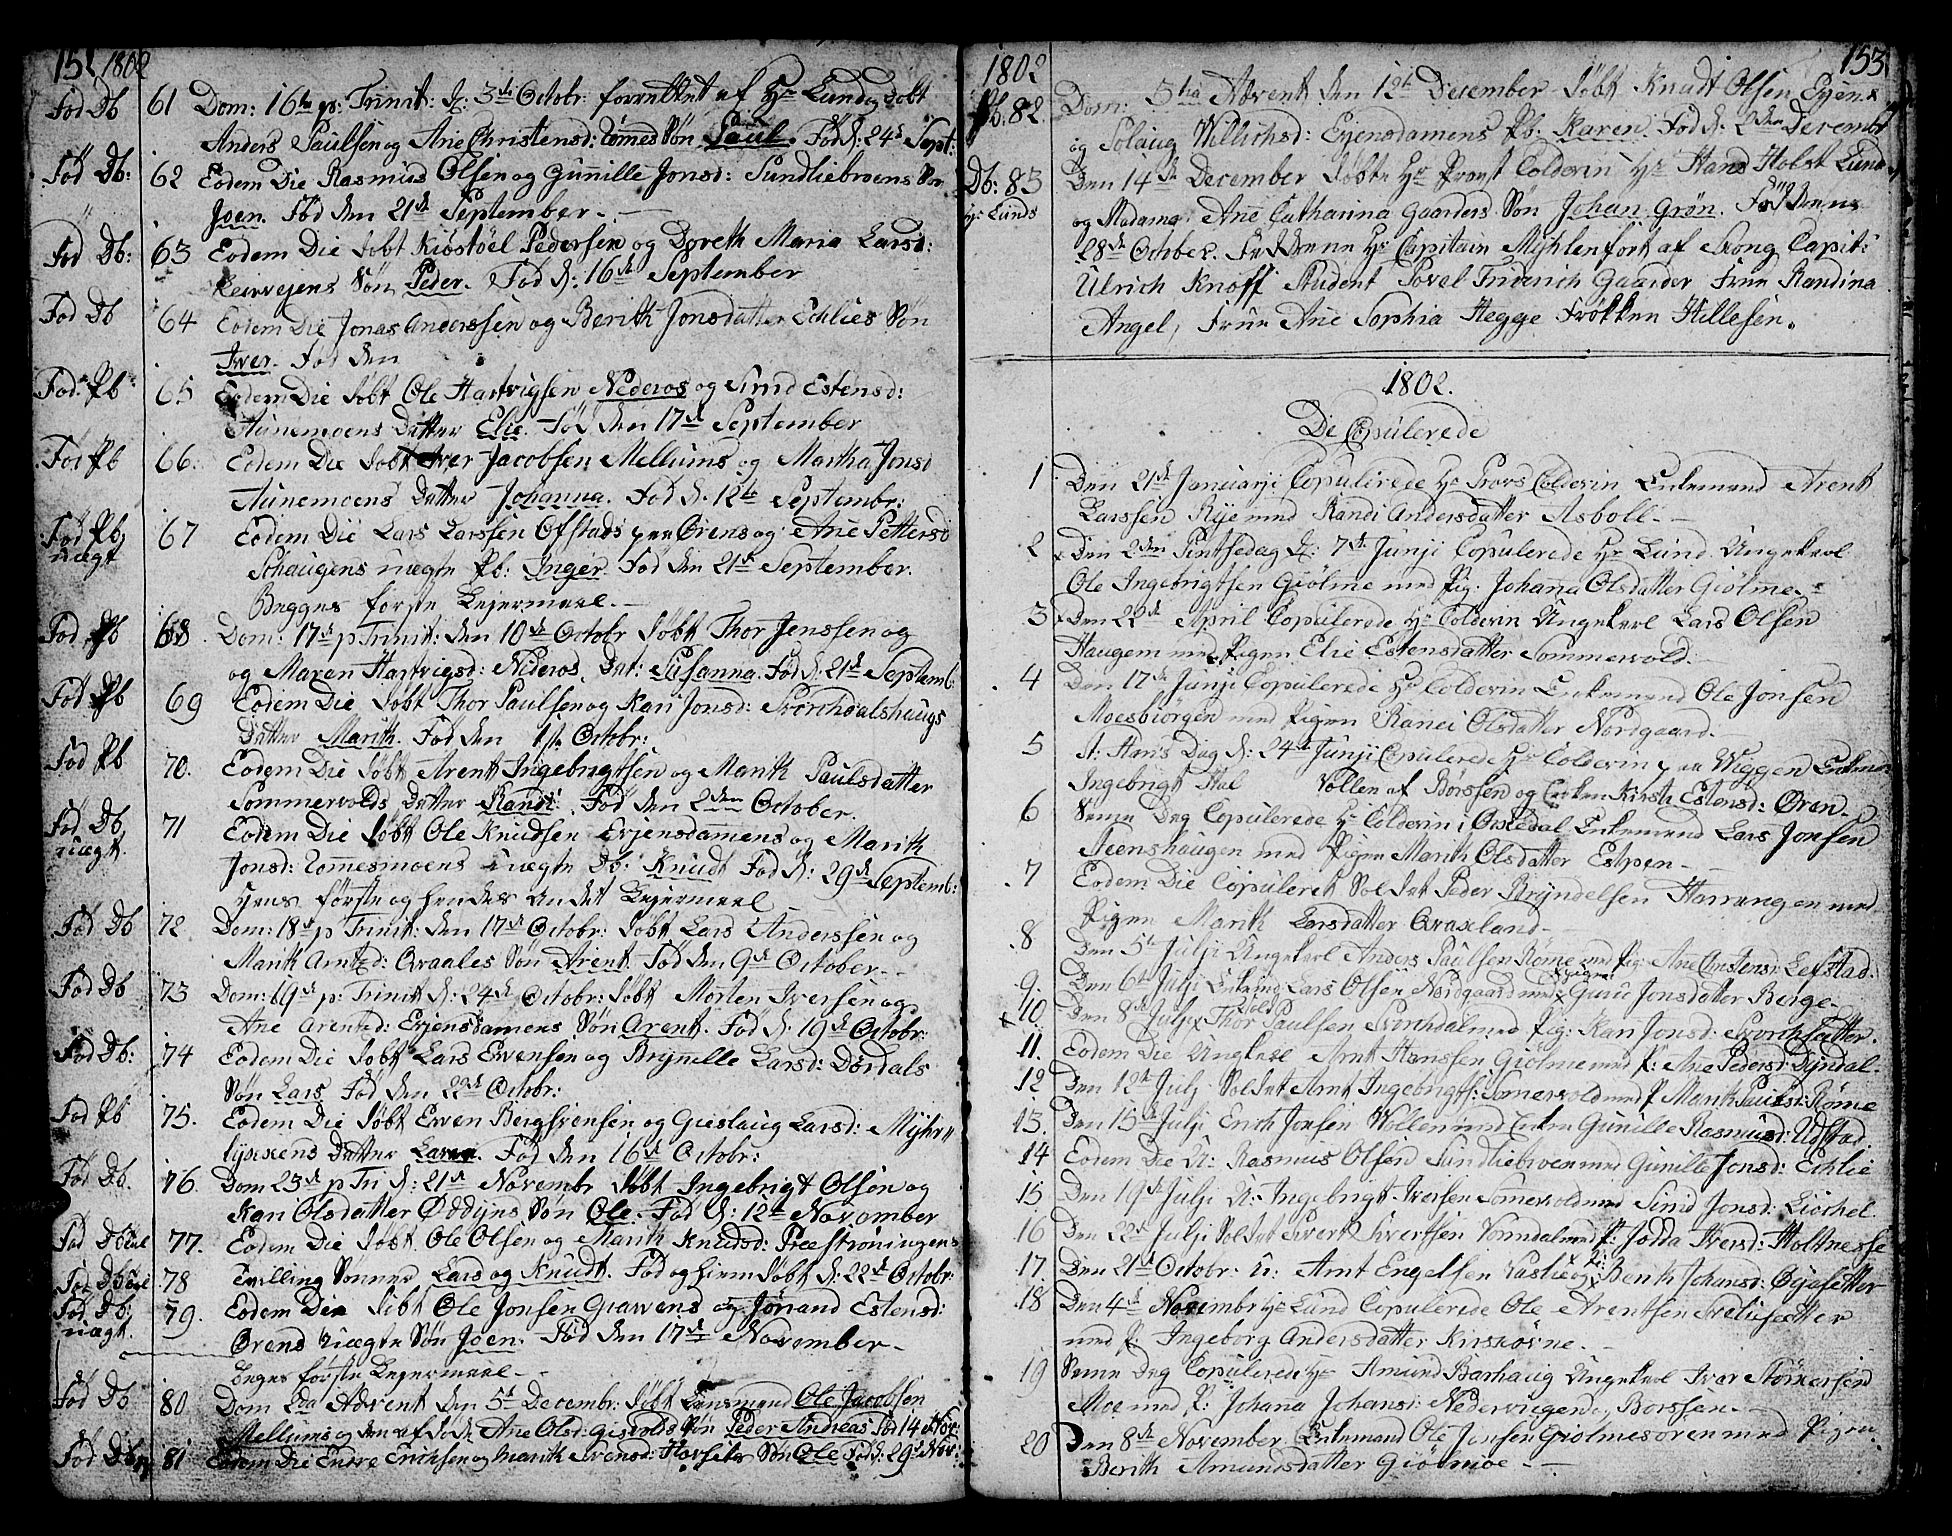 152 1802
Fød Db 61 Dom: 16de p: Trinit: d: 3de Octobr: forrettet af Hr Lund døbt
Anders Paulsen og Ane Christensd: Rømes Søn Paul. Fød d: 24d Sept:
Fød Db: 62 Eodem Die Rasmus Olsen og Gunille Jonsd: Sundliebroens Søn
Joen. Fød den 21de September.
Fød Db: 63 Eodem Die døbt Kiøstøel Pedersen og Dorethe Maria Larsd:
Søn Peder. Fød d: 16de September
Fød Db 64 Eodem Die Jonas Anderssen og Berith Jonsdatter Echlies Søn
Iver. Fød den
Fød Pb 65 Eodem Die døbt Ole Hartvigsen Nideros og Sirud Estensd:
Aunemoens Datter Elie. Fød den 17de September
Fød Pb 66. Eodem Die døbt Iver Jacobsen Mellums og Martha Jonsd
Aunemoens Datter Johanna. Fød d. 12te Septembr:
Fød Pb uægt 67 Eodem Die Lars Larssen Ofstads paa Ørens og Ane Pettersd
Schaugens uægte Pb: Inger. Fød den 21de September.
Begges første Lejermaal.
Fød Pb 68. Dom: 17de p Trinit: den 10de Octobr døbt Thor Jenssen og
og Maren Hartvigsd: Nideros. Dat: Susanna. Fød d: 21de Septemb:
Fød Pb 69 Eodem Die døbt Thor Paulsen og Kari Jonsd: Svorchdalshaugs
Datter Marith. Fød den 1ste Octobr:
Fød Pb 70. Eodem Die døbt Arent Ingebrigtsen og Marith Paulsdatter
Sommervolds Datter Randi. Fød den 2den October.
Fød Db uægt. 71 Eodem Die døbt Ole Knudsen Evjensdamens og Marith
Jonsd: Rømesmoens uægte Db: Knudt Fød d: 29de Septemb:
Hans første og hendes andet Lejermaal
Fød Db 72 Dom: 18de p Trinit: den 17de Octobr: døbt Lars Anderssen og
Marit Arntzd: Qvaales Søn Arent. Fød den 9de October.
Fød Db 73 Dom: 19de p: Trinit d: 24de Octobr: døbt Morten Iversen og
Ane Arentzd: Evjensdamens Søn Arent. Fød d: 19de Octobr:
Fød Db: 74 Eodem Die døbt Lars Evensen og Brynille Larsd: Dørdals
Søn Lars Fød den 22de Octobr:
Fød Pb 75. Eodem Die døbt Even Bergsvensen og Gieslaug Larsd: Myhr
lyckens Datter Fød den 16de Octobr:
Fød Db. 76. Dom 23de p Tri d: 21de Novembr døbt Ingebrigt Olsen og
Kari Olsdatter Øddyns Søn Ole. Fød d: 12te November
Fød Db 77. Eodem Die døbt Ole Olsen og Marith Knudsd: Præstrøningens
Fød Db 78 Tvilling Sønner Lars og Knudt. Fød og hiemdøbt d: 22de Octobr:
Fød Db: uægt. 79. Eodem Die døbt Ole Jonsen Grawens og Jørand Estensd:
Ørens uægte Søn Joen. Fød den 17de November
begges første Lejermaal
Fød Db 80 Dom 2da Advent den 5te Decembr: døbt Lensmand Ole Jacobsen
Mellums og Ane Olsd: Gisvolds Søn Peder Andreas Fød 14de Nov:
Fød Db 81 Eodem Die Endre Erichsen og Marith Svensd: Horsets Søn Ole Fød d: 29de Nov:
1802 153
Pb: 82. Dom: 3tia Advent den 12te December døbt Knudt Olsen Evjens
og Solaug Willichsd: Evjensdamens Pb: Karen. Fød d: 2den Decembr
Db: 83 Den 14de December døbte Hr Provst Colderin Hr Hans Holst Lund
Hr Lunds og Madame Ane Catharina Gaarders Søn Johan Grøn. Fød dens
28de October. Fadderne Hr Capitain Myhlenfort af Krong Capit:
Ulrich Knoff Student Povel Friderich Gaarder Frue Randina
Angel, Frue Ane Sophia Hegge Frøkken Hillesen.
1802.
De Copulerede
1 Den 21de Januarji Copulerede Hr Provs Colderin Enkemand Arent
Larssen Rye med Randi Andersdatter Asboll.
2 Den 2den Pintsedag d: 7de Junji Copulerede Hr Lund Ungekarl
Ole Ingebrigtsen Giølme med Pig: Johanna Olsdatter Giølme.
3 Den 22de April Copulerede Hr Colderin Ungekarl Lars Olsen
Haugen med Pigen Elie Estensdatter Sommervold.
4 Den 17de Junji Copulerede Hr Colderin Enkemand Ole Jonsen
Moesbiørgen med Pigen Ranei Olsdatter Nordgaard.
5 St: Hans Dag d: 24de Junji Copulerede Hr Colderin paa Wiggen Enkem:
Ingebrigt Vollen af Børssen og Enken Kirsti Estensd: Øren.
6 Samme Dag Copulerede Hr Colderin i Orkedal Enkemand Lars Jonsen
Steenshaugen med Pigen Marith Olsdatter Espaen
7 Eodem Die Copuleret Soldat Peder Bryndelsen Harrangen med
Pigen Marith Larsdatter Qvaxland
8 Den 5te Julji Ungekarl Anders Paulsen Rømme med Pig: Ane Christensd: Lefstad:
9. Den 6te Julji Enkmd Lars Olsen Nordgaard med Pigen Guru Jonsdatter Berge.
10 Den 8de Julji Sold Thor Paulsen Svorchdal med Pig: Kari Jonsd: Svorchsætter.
11. Eodem Die Ungkarl Arnt Hanssen Giølme med P: Ane Pedersd: Dyndal.
12 Den 12te Julj Soldat Arnt Ingebrigts: Somervold med P Marit Paulsd: Rømme
13. Den 15de Julji Erich Jonsen Wollen med Enken Gunille Rasmusd: Udstad.
14 Eodem Die U: Rasmus Olsen Sundliebroen med Gunille Jonsd: Echlie
15 Den 19de Julji U: Ingebrigt Iversen Somervold med Sirid Jonsd: Liøchel.
16 Den 22de Julji Soldat Sivert Sivertsen Vormdal med P: Jødda Iversd: Holtnesse
17. Den 21de Octobr. U: Arnt Engelsen Vaslie og Pi: Berit Johansd: Øyesetter
18 Den 4de Novembr Hr Lund Copulerede Ole Arentsen Sveliesætter
med P: Ingeborg Andersdatter Kirskovne.
19 Samme Dag Copulerede Hr Amund Barhaug Ungekarl Ivar Størkersen
Moe med P: Johana Johansd: Nederviigende, Borssen
20 Den 8de November Enkemand Ole Jonsen Giølmesøren med Pigen
Berith Amundsdatter Giølmoe.